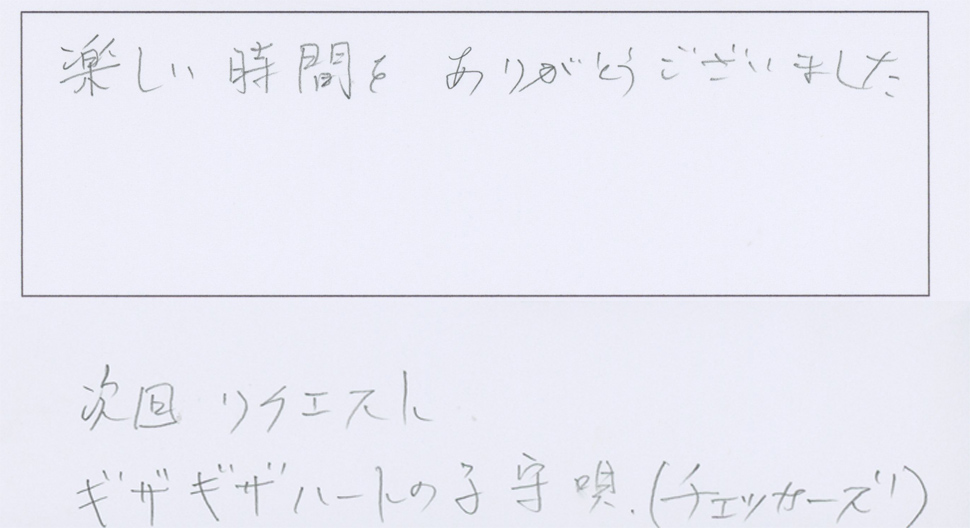 楽しい時間を ありがとうございました
次回 リクエスト
ギザギザハートの子守唄.(チェッカーズ)